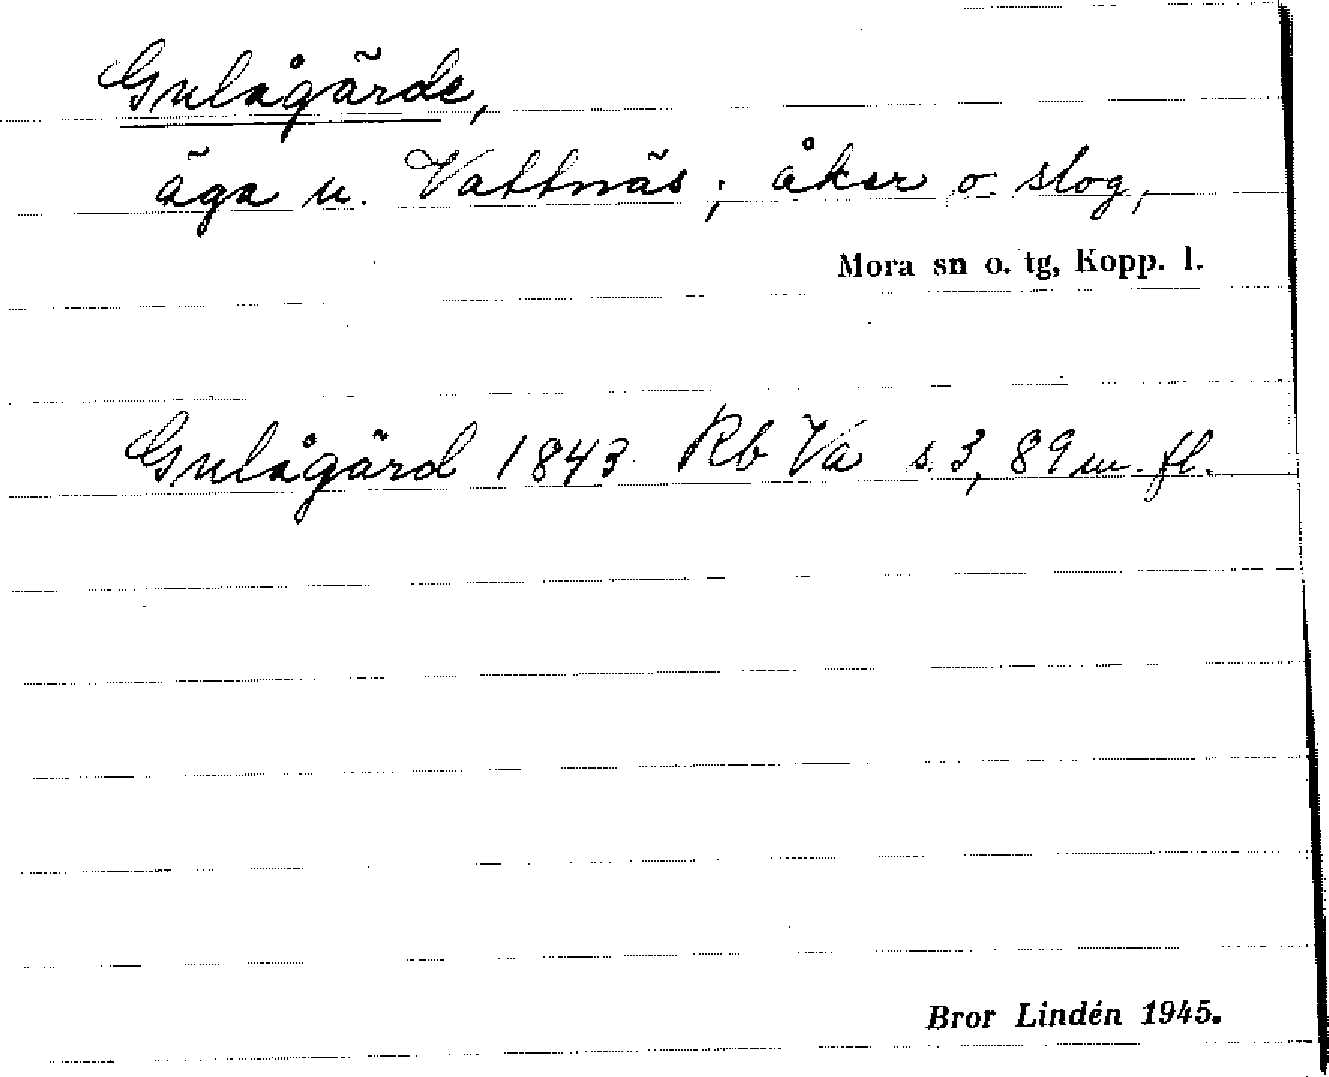 Gulågärde,
äga u. Vattnäs; åker o. slog,
Mora sn o. tg, Kopp. l.
Gulågärd 1843 Rb Va s. 3, 89 m. fl.
Bror Lindén 1945.